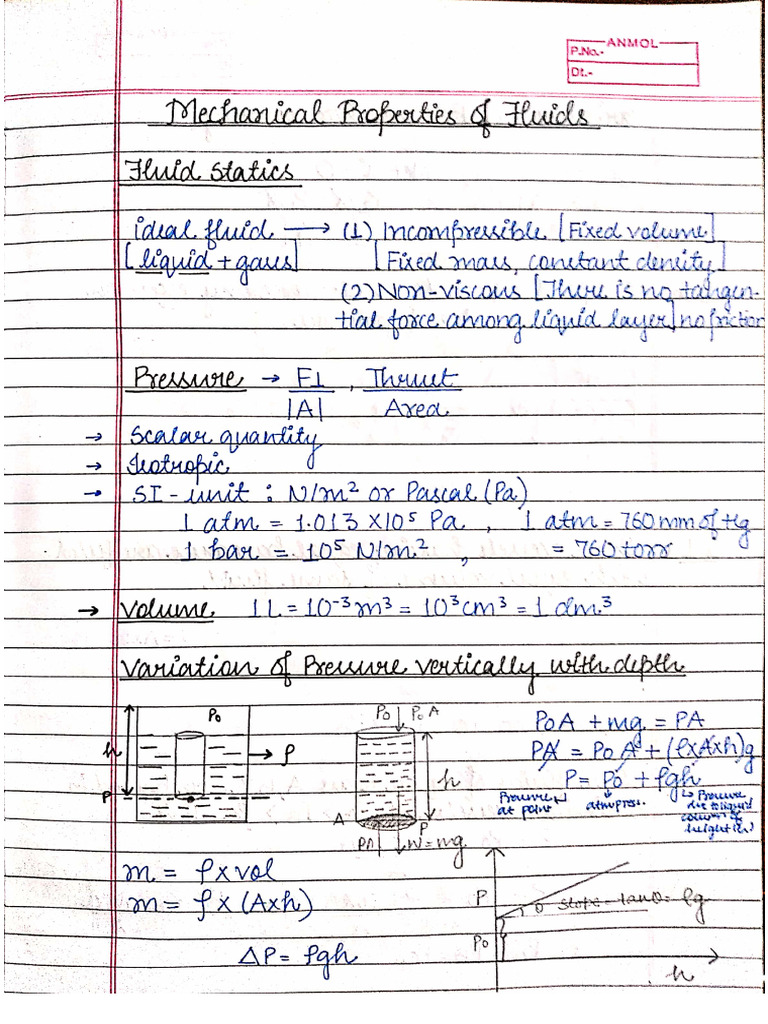 ANMOL
P.No.-
Dt.-
Mechanical Properties of Fluids
Fluid Statics
ideal fluid ⟶ (1) Incompressible [Fixed volume]
[liquid + gaus] [Fixed mass, constant density]
(2) Non-viscous [There is no tangen-
tial force among liquid layer] no friction
Pressure → F⊥ , Thrust
|A| Area
→ Scalar quantity
→ Isotropic
→ SI-unit : N/m² or Pascal (Pa)
1 atm = 1.013 X10⁵ Pa , 1 atm = 760 mm of Hg
1 bar = 10⁵ N/m² , = 760 torr
→ Volume 1 L = 10⁻³ m³ = 10³ cm³ = 1 dm³
Variation of Pressure vertically with depth
P₀
h
ρ
P
P₀ P₀A
h
A
P
PA W=mg
P₀A + mg = PA
PA = P₀A + (ρxAxh)g
P = P₀ + ρgh
Pressure at point
atm press.
Pressure due to liquid column of height (h)
m = ρ x vol
m = ρ x (Axh)
ΔP = ρgh
P
θ slope = tanθ = ρg
P₀
h